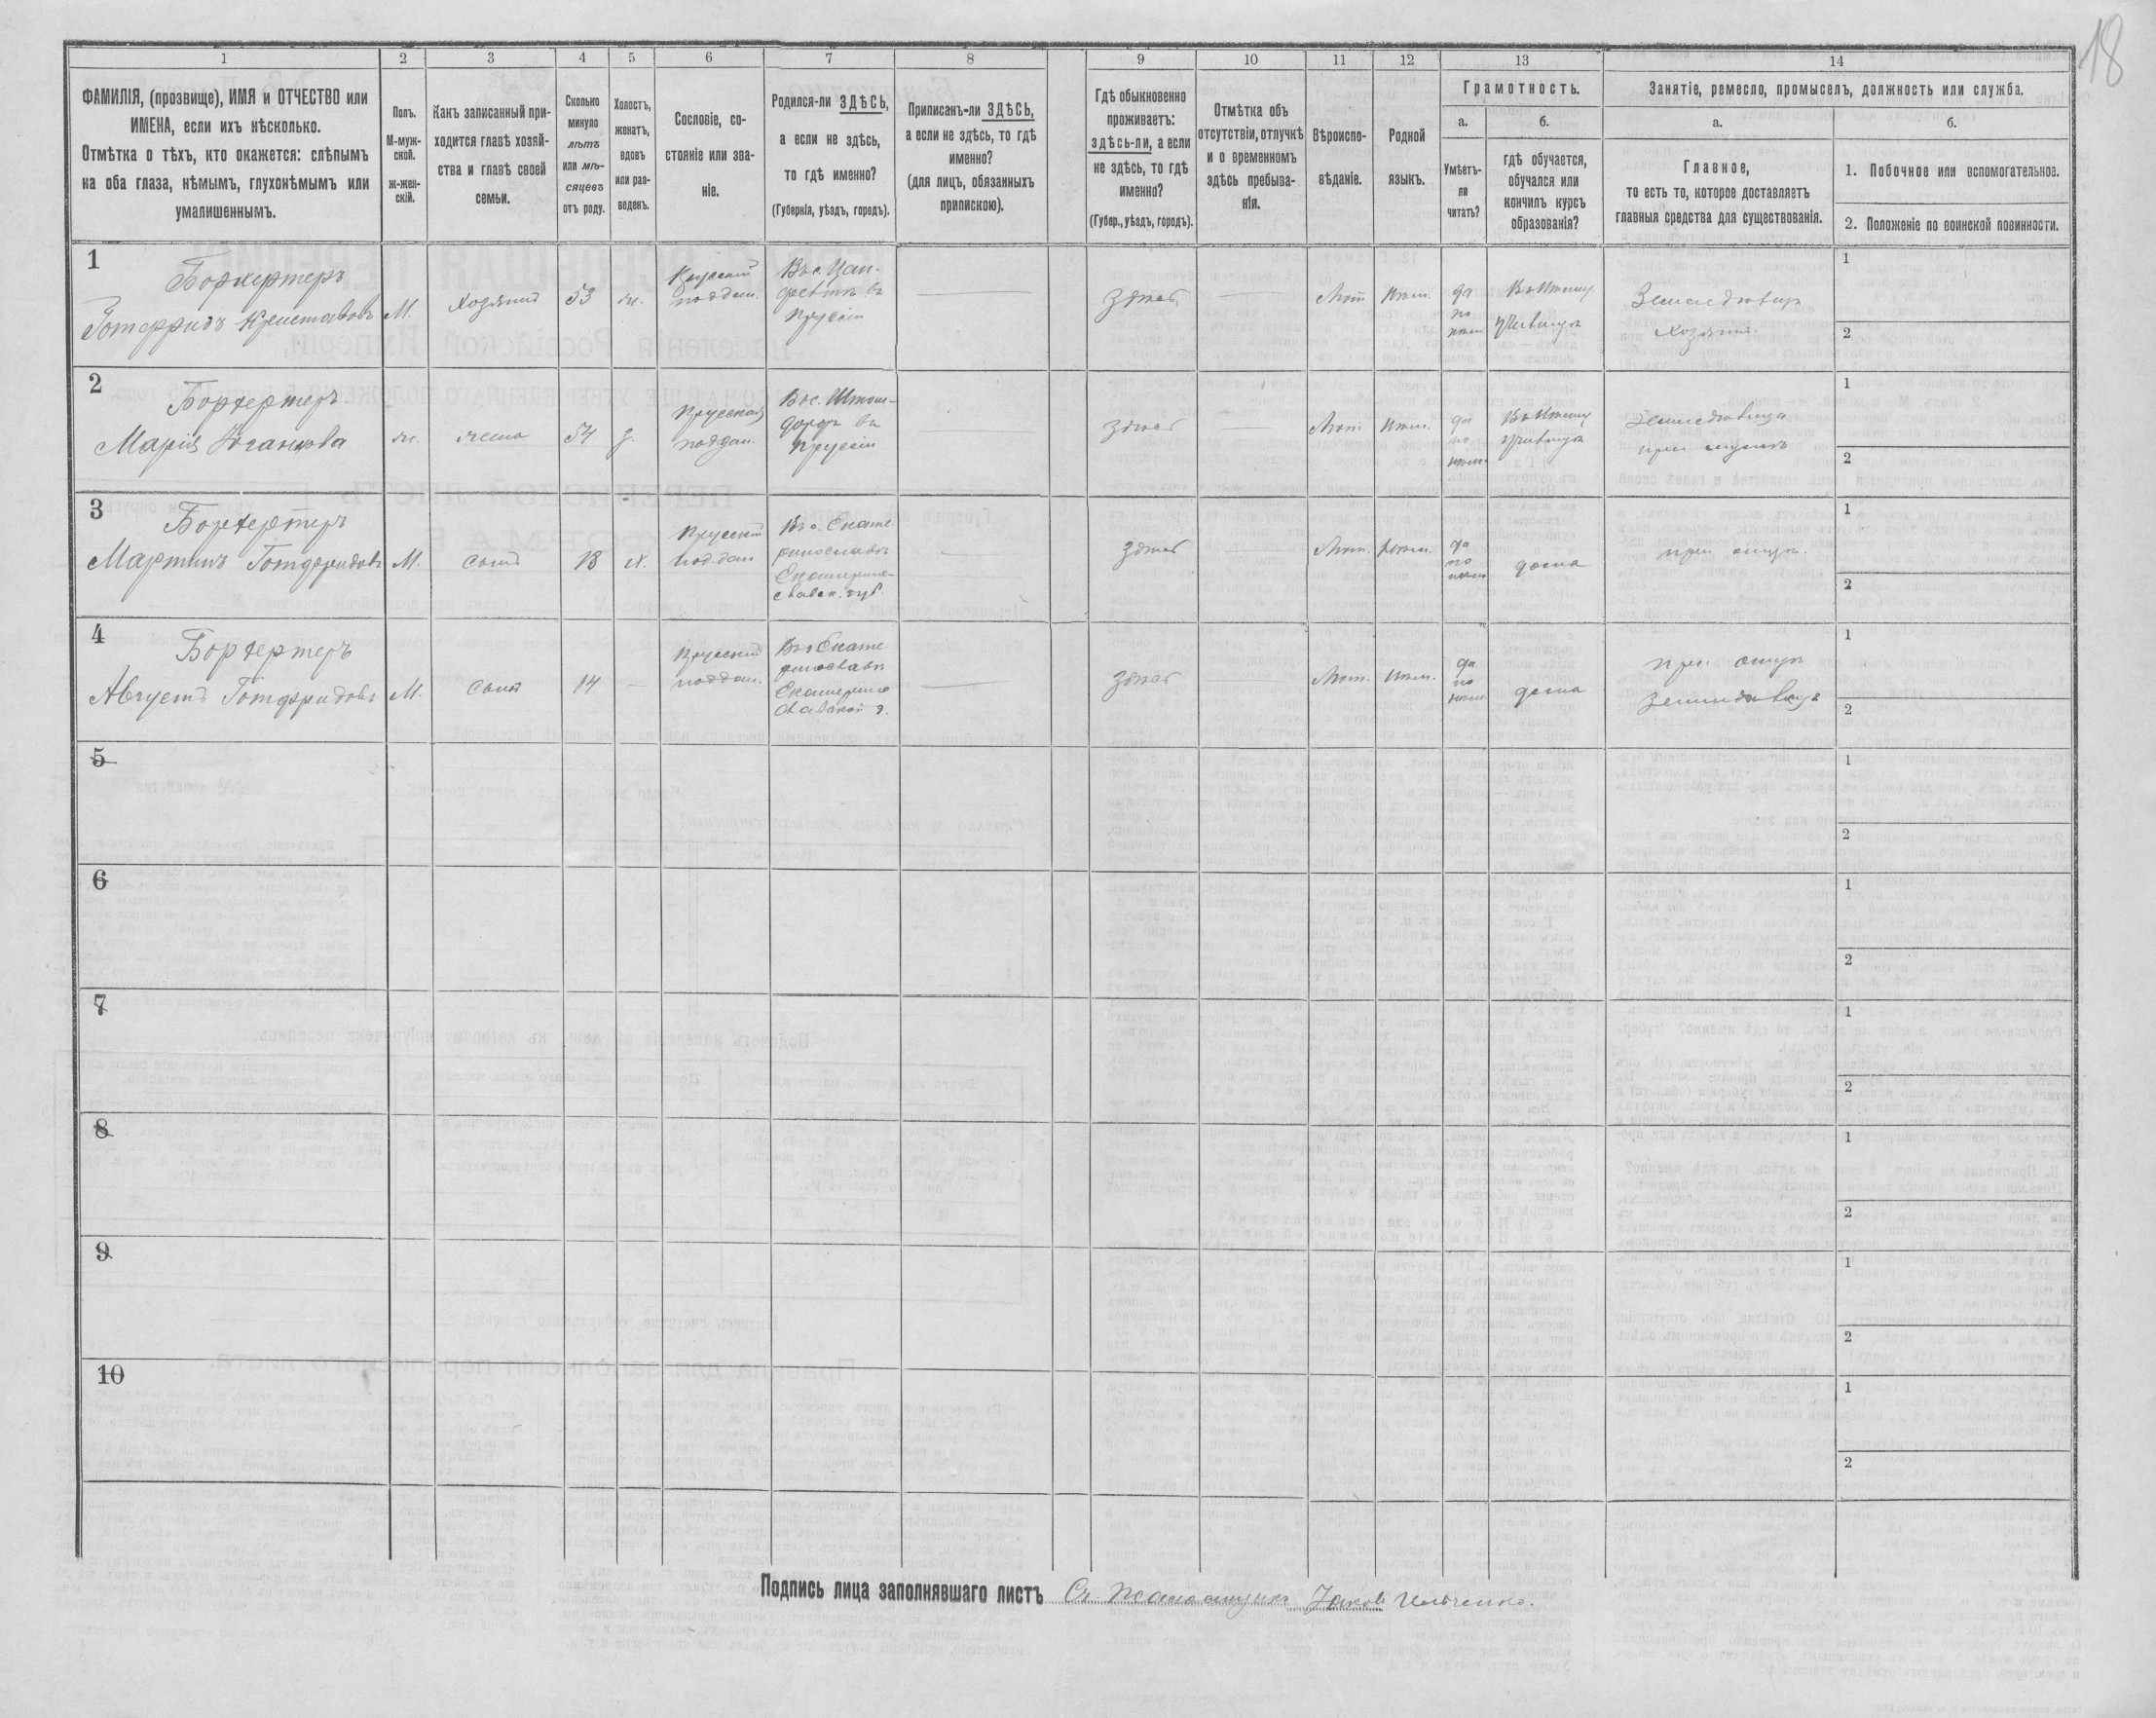 18
1 2 3 4 5 6 7 8 9 10 11 12 13 14
ФАМИЛІЯ, (прозвище), ИМЯ и ОТЧЕСТВО или
ИМЕНА, если ихъ нѣсколько.
Отмѣтка о тѣхъ, кто окажется: слѣпымъ
на оба глаза, нѣмымъ, глухонѣмымъ или
умалишеннымъ.
Полъ.
М-муж-
ской.
ж-жен-
скій.
Какъ записанный при-
ходится главѣ хозяй-
ства и главѣ своей
семьи.
Сколько
минуло
лѣтъ
или мѣ-
сяцевъ
отъ роду.
Холостъ,
женатъ,
вдовъ
или раз-
веденъ.
Сословіе, со-
стояніе или зва-
ніе.
Родился-ли ЗДѢСЬ,
а если не здѣсь,
то гдѣ именно?
(Губернія, уѣздъ, городъ).
Приписанъ-ли ЗДѢСЬ,
а если не здѣсь, то гдѣ
именно?
(для лицъ, обязанныхъ
припискою).
Гдѣ обыкновенно
проживаетъ:
здѣсь-ли, а если
не здѣсь, то гдѣ
именно?
(Губер., уѣздъ, городъ).
Отмѣтка объ
отсутствіи, отлучкѣ
и о временномъ
здѣсь пребыва-
ніи.
Вѣроиспо-
вѣданіе.
Родной
языкъ.
Грамотность.
а.
Умѣетъ-
ли
читать?
б.
гдѣ обучается,
обучался или
кончилъ курсъ
образованія?
Занятіе, ремесло, промыселъ, должность или служба.
а.
Главное,
то есть то, которое доставляетъ
главныя средства для существованія.
б.
1. Побочное или вспомогательное.
2. Положеніе по воинской повинности.
1
Борхертеръ
М. Хозяинъ 53 ж.
поддан.
въ
Прусіи
здѣсь Лют. Нѣм.
да
по
нѣм.
Хозяинъ.
1
2
2
Борхертеръ
Марія
ж. жена 54 з.
Прусская
поддан.
дорфъ въ
Прусіи
здѣсь Лют. Нѣм.
да
по
нѣм.
при мужѣ
1
2
3
Борхертеръ
Мартинъ Готфридовъ М. сынъ 18 х.
поддан
Екате
ринославъ
Екатерино-
славск. губ.
здѣсь Лют. Нѣм.
да
по
нѣм.
дома
при отцѣ.
1
2
4
Борхертеръ
Августъ Готфридовъ М. сынъ 14
поддан.
Екате
ринославъ
Екатерино
славской г.
здѣсь Лют. Нѣм.
да
по
нѣм.
дома
при отцѣ
1
2
5
1
2
6
1
2
7
1
2
8
1
2
9
1
2
10
1
2
Подпись лица заполнявшаго листъ Яковъ Ильченко.